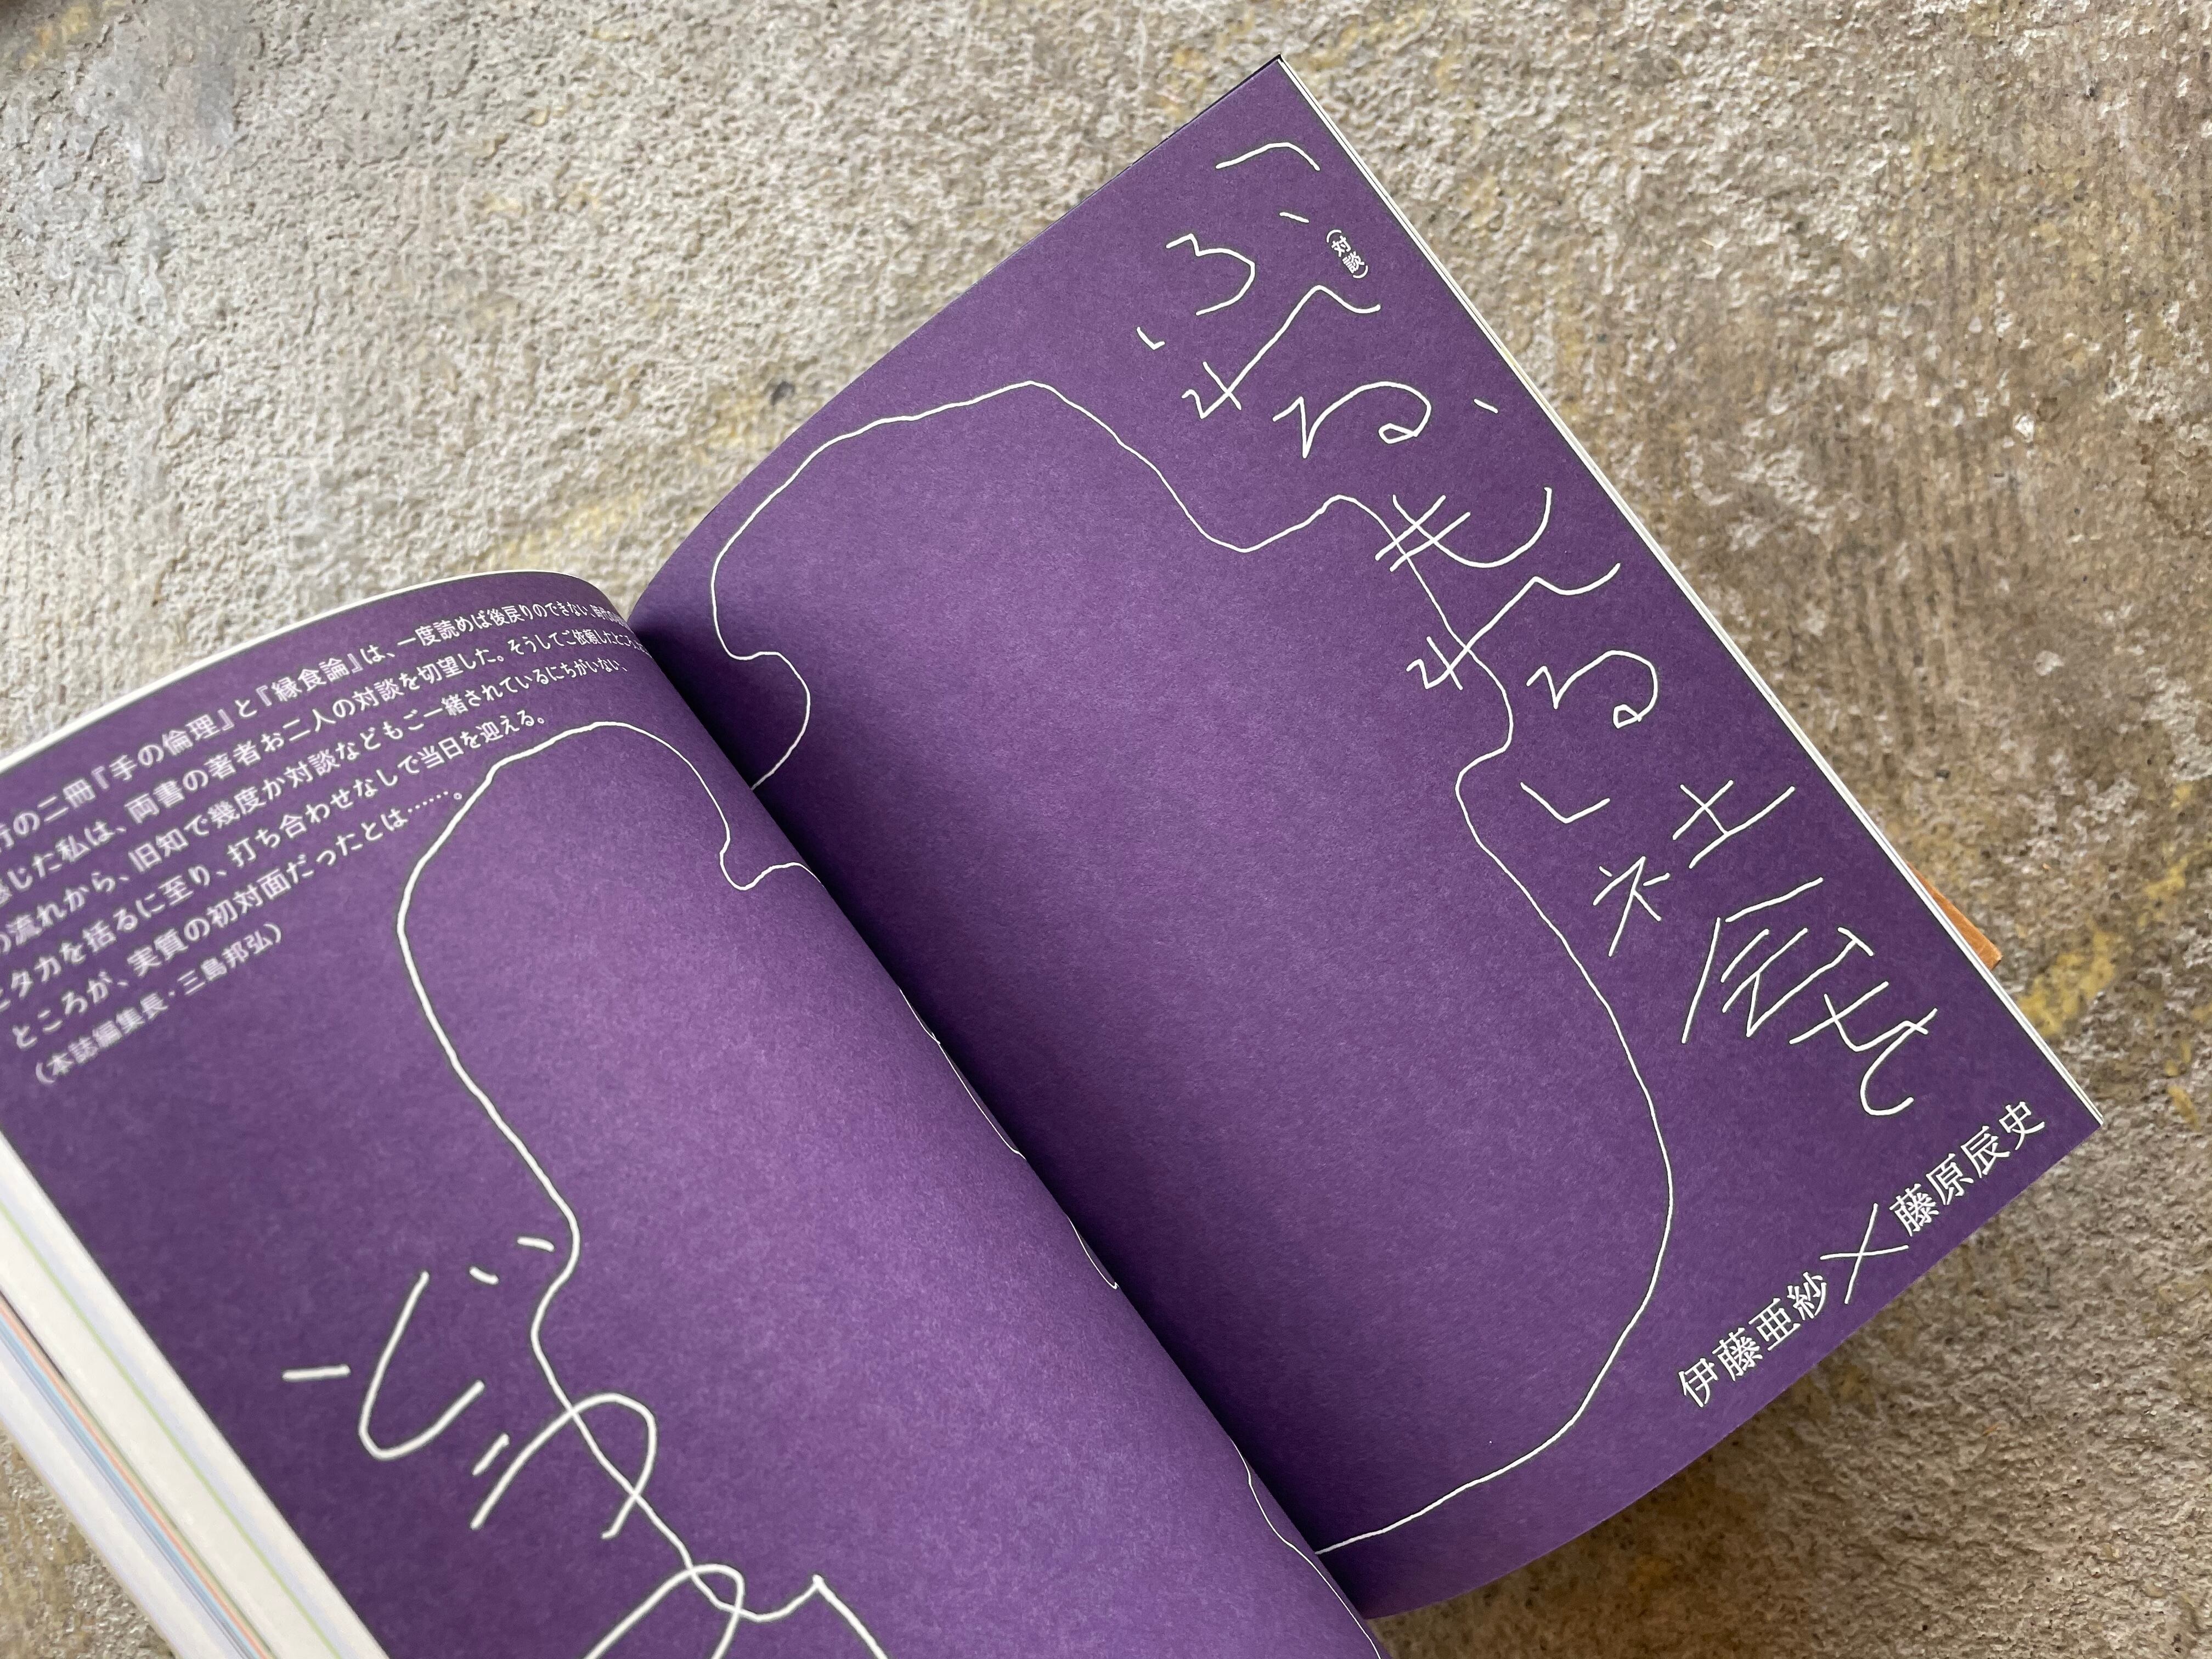 （対談）
「ふれる、もれる」社会を
伊藤亜紗×藤原辰史
の二冊『手の倫理』と『縁食論』は、一度読めば後戻りのできない、
感じた私は、両書の著者お二人の対談を切望した。そうしてご依頼したところ、
の流れから、旧知で幾度か対談などもご一緒されているにちがいない、
とタカを括るに至り、打ち合わせなしで当日を迎える。
ところが、実質の初対面だったとは……。
（本誌編集長・三島邦弘）
どう